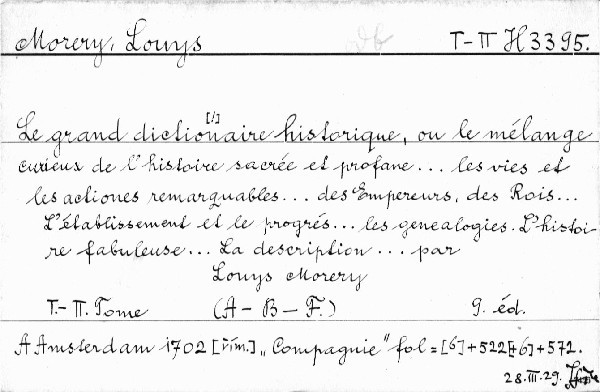 Morery, Louys I-II H 3395.
[!]
Le grand dictionaire historique, ou le mélange
curieux de l'histoire sacrée et profane... les vies et
les actiones remarquables... des Empereurs, des Rois...
L'établissement et le progrés... les genealogies. L'histoi-
re fabuleuse... La description... par
Louys Morery
I.-II. Tome (A-B-F.) 9. éd.
A Amsterdam 1702 "Compagnie" fol = [6]+522[+6]+572.
28.III.29.